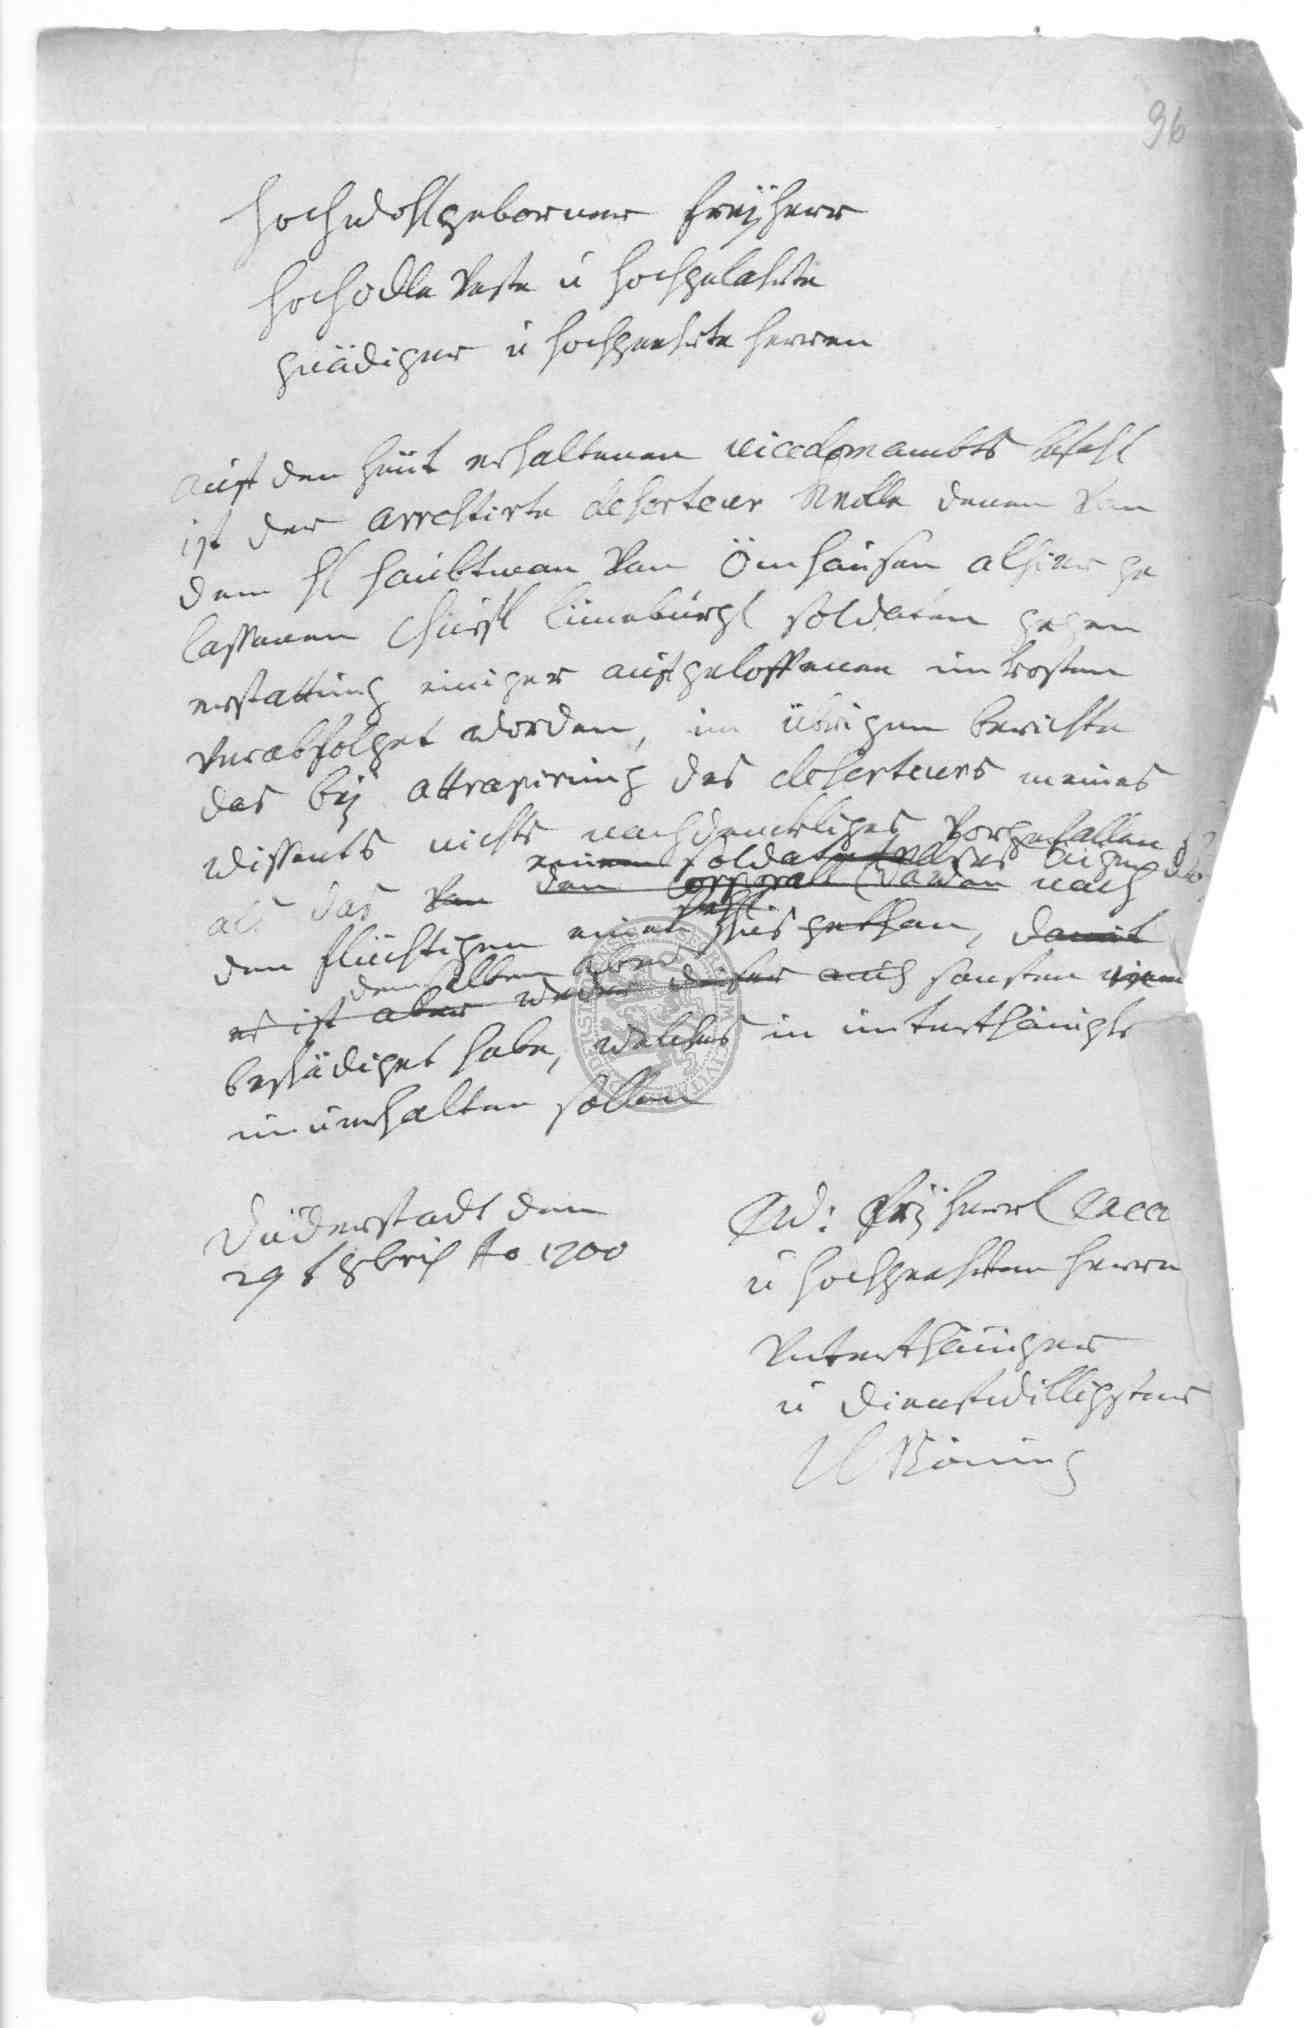 96
Hochwollgeborner Freÿherr
HochEdle Veste u Hochgelahrte
gnädiger u Hochgeehrte Herren
auff den heut erhaltenen vicedomambts befehl
ist der arrestirte deserteur Nolle denen von
dem H Haubtman von Ömhausen alhier ge
lassenen Churfl Lüneburgl soldaten gegen
erstattung einiger auffgeloffenen unkosten
verabfolget worden, im übrigen berichte
das beÿ attrapirung des deserteurs meines
wissents nichts nachdenckliges vorgefallen
einem soldaten
als das von dem Corporall davon nach
den flüchtigen einen schus gethan, damit
denselben
er ist aber weder dieser auch sonsten
beschädiget habe, welches in unterthänigkt
unverhalten sollen
Duderstadt den
29 t 9bris Ao 1700
Ew: Freÿherrl Excell
u Hochgeehrten Herrn
Unterthäniger
u dienstwilligster
Köning